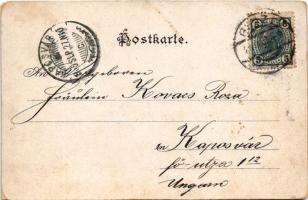 Postkarte.
An
geboren
Fräulein Kovacs Roza
in Kaposvár
fö-utza 112
Ungarn